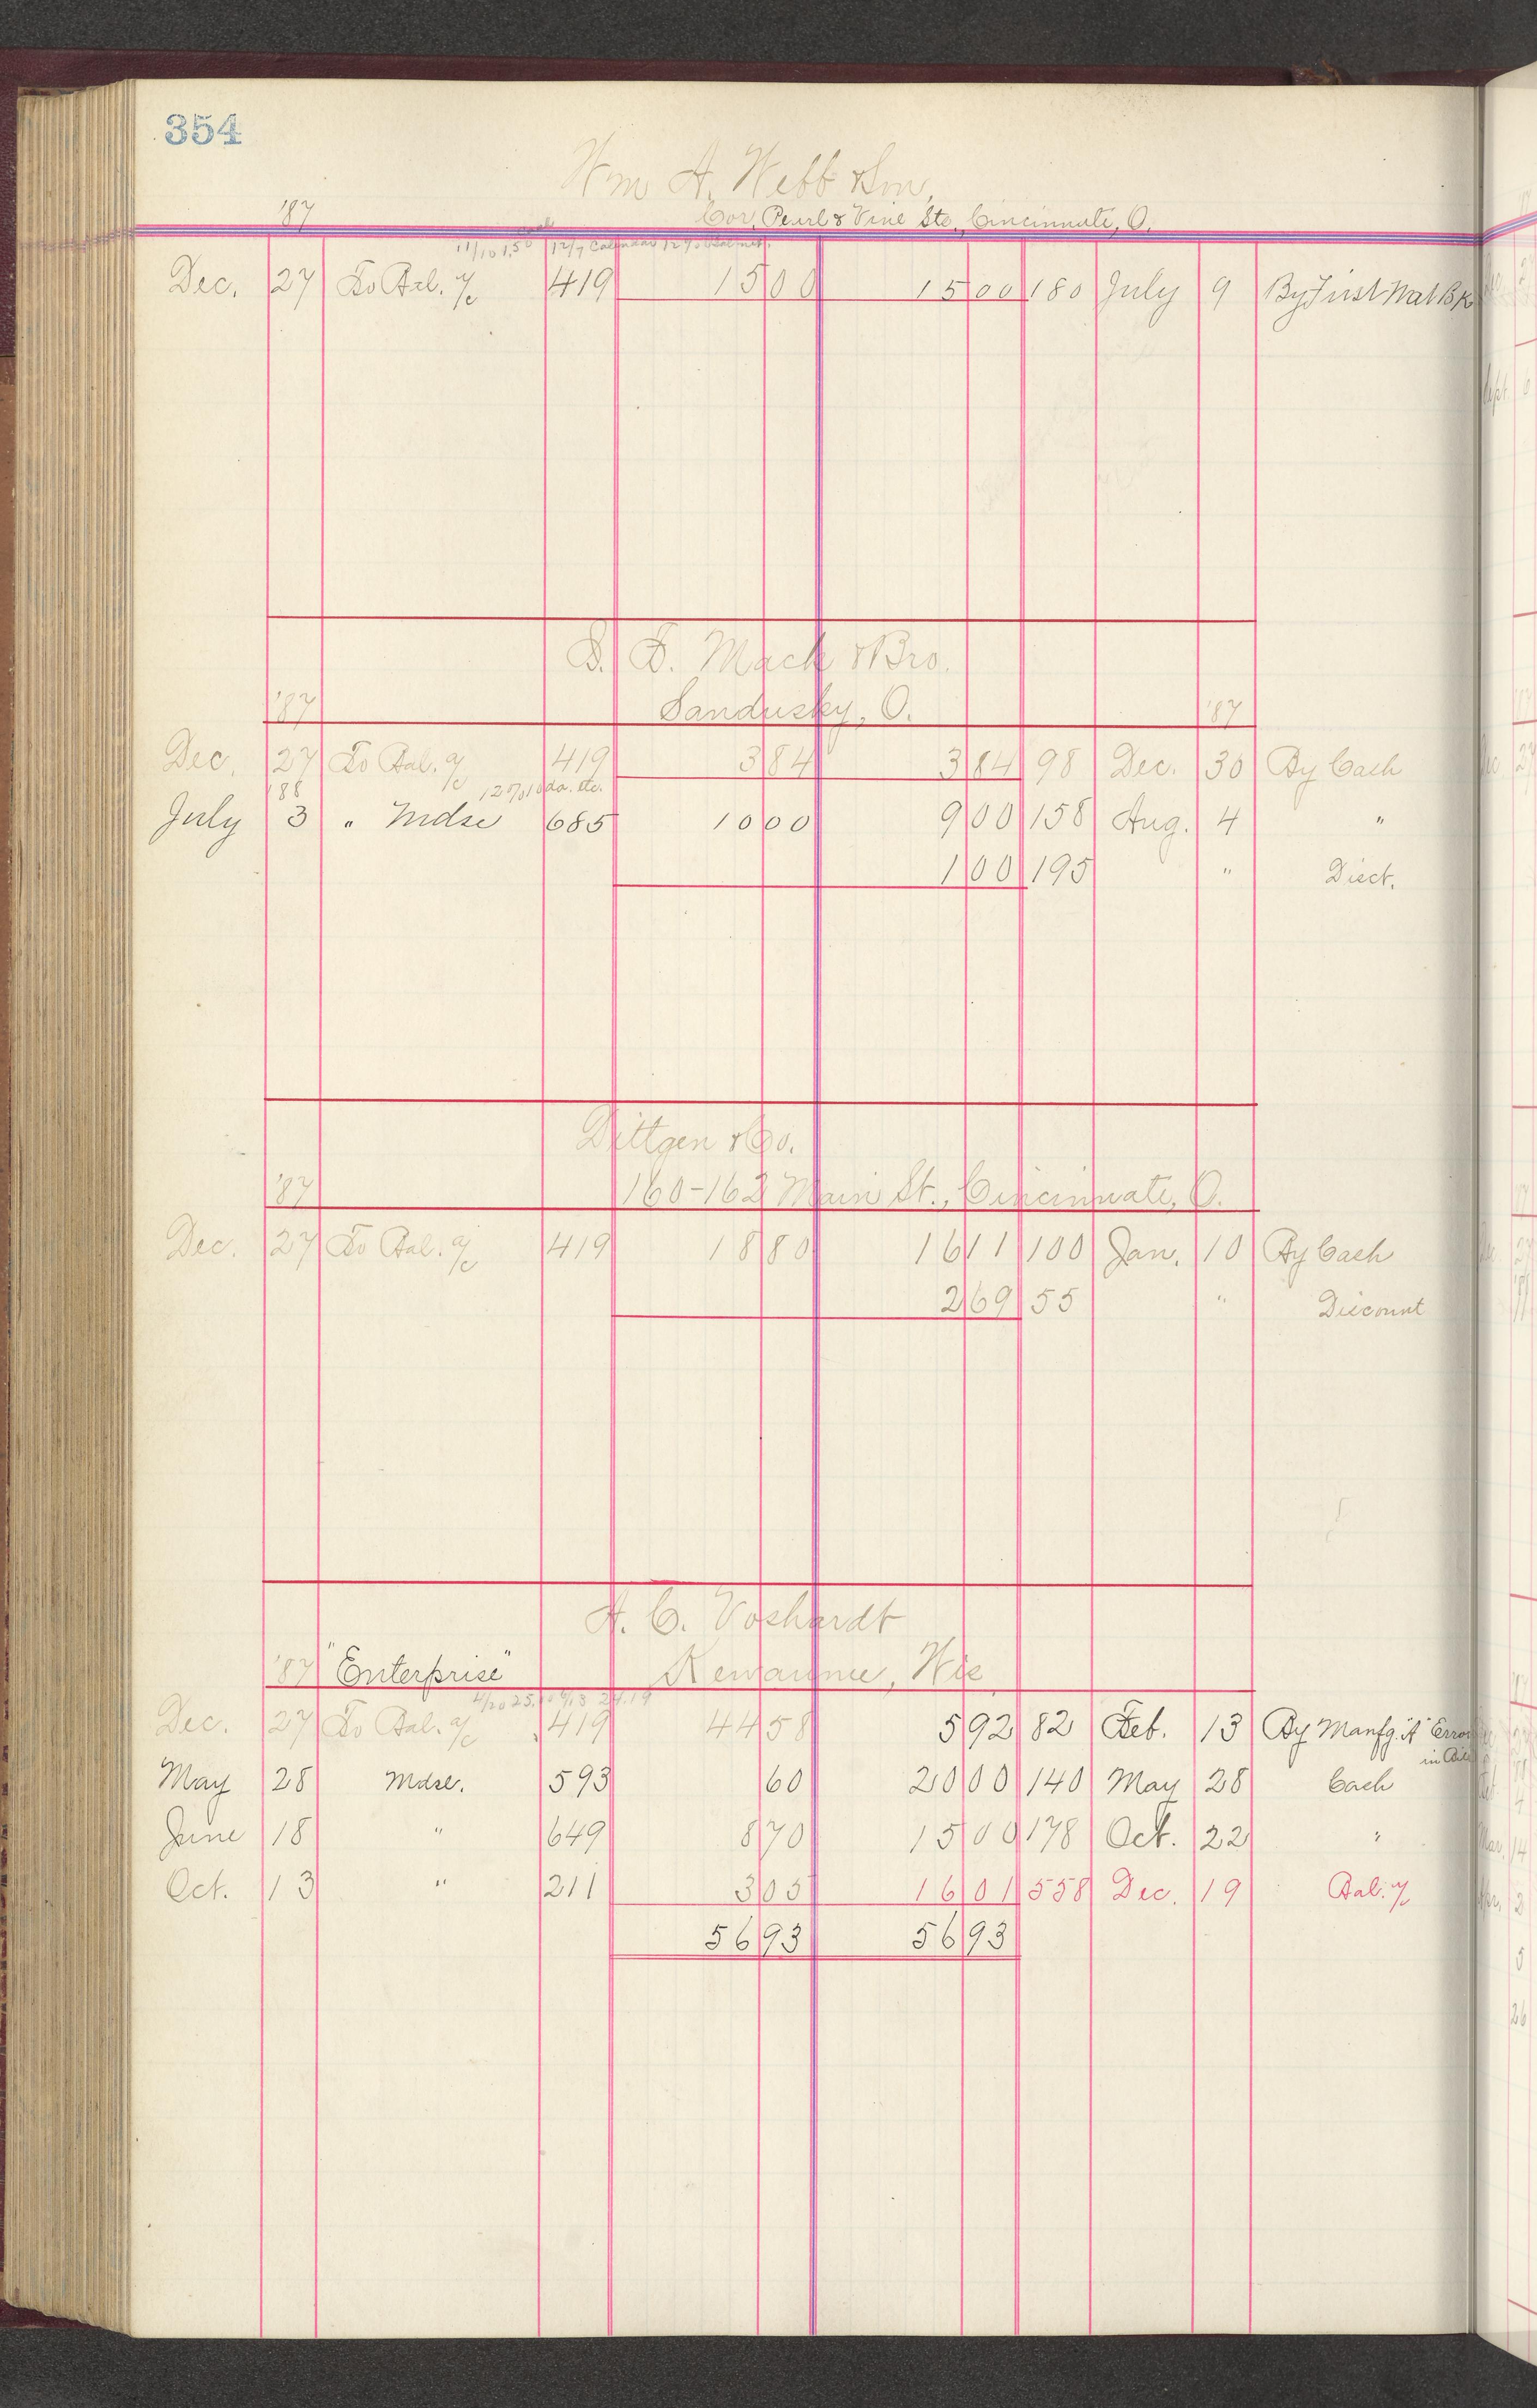 354
Wm A. Webb & Son,
'87 Cor. Pearl & Vine Sts., Cincinnati, O.
Dec. 27 To Bal. a/c 419 1500 1500 180 July 9 By First Nat Bk
S. F. Mack & Bro.
'87 Sandusky, O. '87
Dec. 27 To Bal. a/c 419 384 384 98 Dec. 30 By Cash
'88
July 3 " Mdse 685 1000 900 158 Aug. 4 "
100 195 " Disct.
Dittgen & Co.
'87 160-162 Main St., Cincinnati, O.
Dec. 27 To Bal. a/c 419 1880 1611 100 Jan. 10 By Cash
269 55 " Discount
A. C. Voshardt
'87 "Enterprise" Kewaunee, Wis
Dec. 27 To Bal. a/c 419 4458 592 82 Feb. 13 By Manfg. "A" Error
in Bill
May 28 Mdse. 593 60 2000 140 May 28 Cash
June 18 " 649 870 1500 178 Oct. 22 "
Oct. 13 " 211 305 1601 558 Dec. 19 Bal. a/c
5693 5693